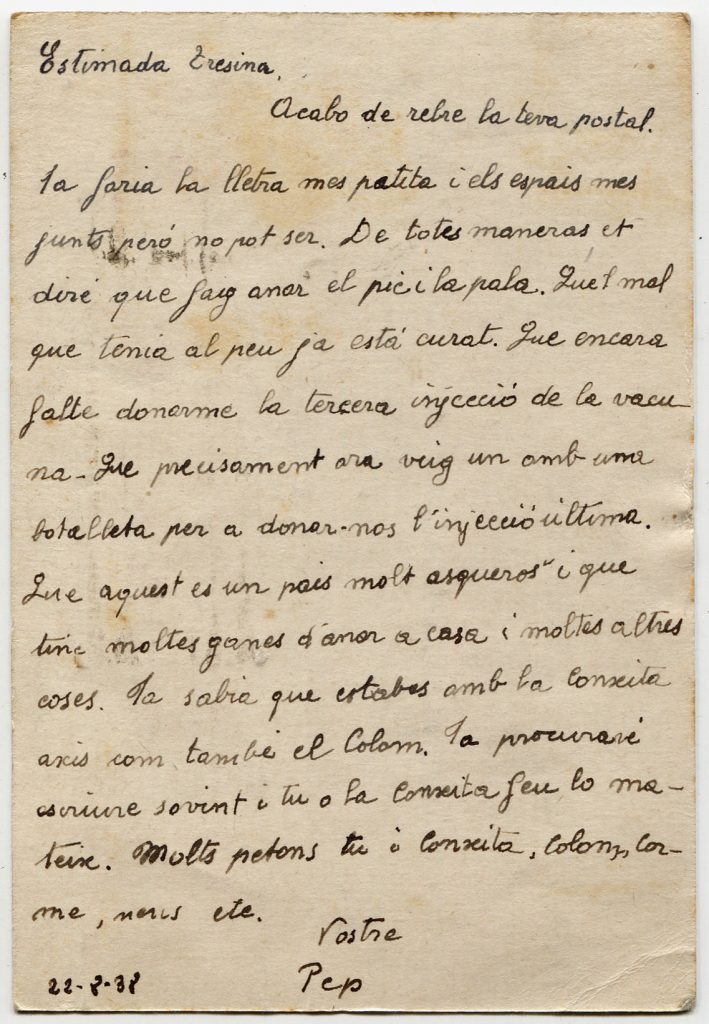 Estimada Tresina,
Acabo de rebre la teva postal.
Ja faria la lletra mes patita i els espais mes
junts peró no pot ser. De totes maneras et
diré que faig anar el pic i la pala. Que'l mal
que tenia al peu ja está curat. Que encara
falte donarme la tercera injecció de la vacu-
na - Que precisament ara veig un amb una
botelleta per a donar-nos l'injecció última.
Que aquest es un pais molt asqueros" i que
tinc moltes ganes d'anar a casa i moltes altres
coses. Ja sabia que estabes amb la Conxeita
axis com també el Colom. Ja procuraré
escriure sovint i tu o la Conxeita feu lo ma-
teix. Molts petons tu i Conxeita, Colom, Car-
me, nens etc.
Vostre
Pep
22-8-38